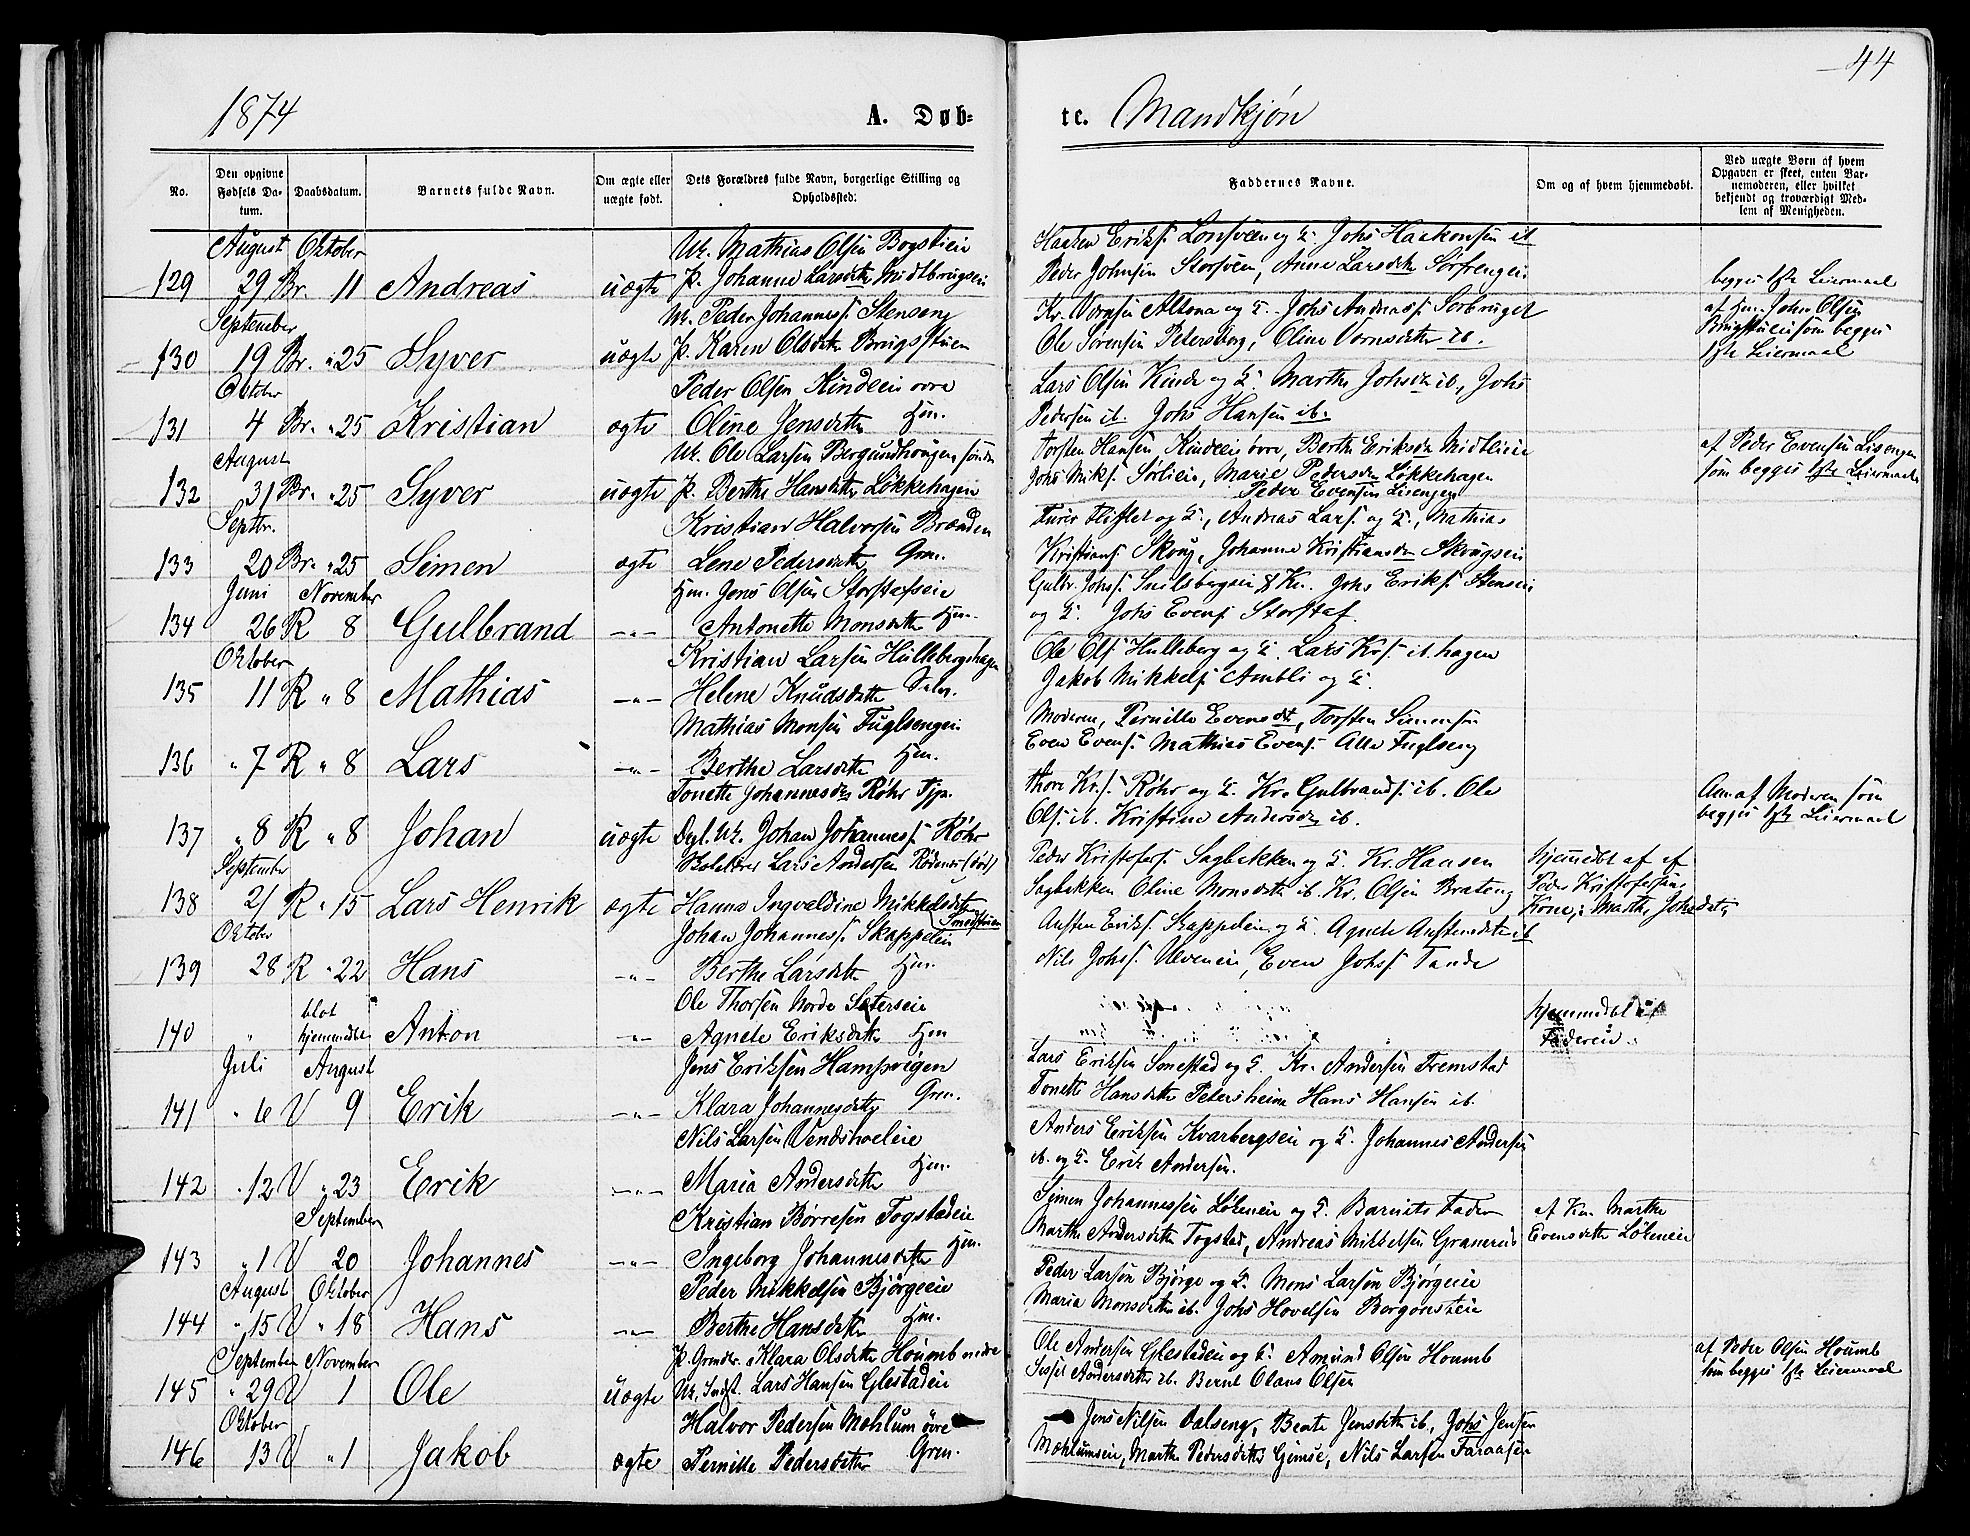 44
1874
A. Døb-
te. Mandkjøn
No.
Den opgivne Fødsels Datum.
Daabsdatum.
Barnets fulde Navn.
Om ægte eller uægte født.
Dets Forældres fulde Navn, borgerlige Stilling og Opholdssted.
Faddernes Navne.
Om og af hvem hjemmedøbt.
Ved uægte Børn af hvem Opgaven er skeet, enten Barnemoderen, eller hvilket bekjendt og troværdigt Medlem af Menigheden.
August Oktober
129 29 Br. 11 Andreas uægte
U. Mathias Olsen Bogstieie
P. Johanne Larsdtr Midtbrugseie
Haaken Eriks. Lonsveen og K. Johs Haakonsen ib
Peder Johnsen Storsveen, Anne Larsdtr Sørsengen
begges 1ste Leiermaal
September
130 19 Br. " 25 Syver uægte
U. Peder Johanness. Stenseng
P. Karen Olsdtr Brugsstuen
Kr. Altona og K. Johs Andreass. Sorbruget
Ole Sørensen Petersborg, Oline ib.
af Hm. John Olsen
som begges
1ste Leiermaal
Oktober
131 4 Br. " 25 Kristian ægte
Peder Olsen Kindeeie øvre
Oline Jensdtr Hm.
Lars Olsen Kinde og K. Marthe Johsdtr ib, Johs
Pedersen ib. Johs Hansen ib.
August
132 31 Br. " 25 Syver uægte
U. Ole Larsen Bergundhaugen søndre
P. Berthe Hansdtr Løkkehagen
Torsten Hansen Kindeeie øvre, Berthe Eriksdtr Midtlieie
Johs Miks. Sørlieie, Marie Pedersdtr Løkkehagen
Peder Evensen Lisengen
af Peder Evensen Lisengen
som begges 1ste Leiermaal
Septbr.
133 20 Br. " 25 Simen ægte
Kristian Halvorsen Brænden
Lene Pedersdtr Grm.
og K., Andreas Lars. og K., Mathias
Kristians. Skoug, Johanne Kristiansdtr Skougseie
Juni November
134 26 R 8 Gulbrand -"-
Hm. Jens Olsen Storstafseie
Antonette Monsdtr Hm.
Gulbr. Johs. Snilsbergseie & Kr. Johs Eriks. Stenseie
og K. Johs Evens. Storstaf.
Oktober
135 11 R " 8 Mathias -"-
Kristian Larsen Hullebergshagen
Helene Knudsdtr Selv.
Ole Ols. Hulleberg og K. Lars Krs. ib. hagen
Jakob Mikkels. Ambli og K.
136 " 7 R " 8 Lars -"-
Mathias Monsen Fuglsengen
Berthe Larsdtr Hm.
Moderen, Pernille Evensdt, Torsten Simensen
Even Evens. Mathias Evens. Alle Fuglseng
137 " 8 R " 8 Johan uægte
Tonette Johannesdtr Røhr Tjp.
Dgl. U. Johan Johanness. Røhr
Thore Kr.s. Røhr og K. Kr. Gulbrands. ib. Ole
Ols. ib. Kristine Andersdtr ib.
Anm. af Moderen som
begges 1ste Leiermaal
September
138 21 R " 15 Lars Henrik ægte
Skolelærer Lars Andersen Rønnes (død)
Hanna Ingvaldine Mikkelsdtr
Smedstuen
Peder Kristofers. Sagbakken og K. Kr. Hansen
Sagbakken Eline Monsdtr ib. Kr. Olsen Brateng
hjemmedbt af af
Peder Kristofersens
Kone, Marthe Johsdatr
Oktober
139 28 R " 22 Hans -"-
Johan Johanness. Skappeleie
Berthe Larsdtr Hm.
Austen Eriks. Skappeleie og K. Agnete Austensdtr ib
Nils Johs. Ulveneie, Even Johs. Tande
140 " blot hjemmedbt Anton -"-
Ole Thorsen Nordre Sæterseie
Agnete Eriksdtr Hm
hjemmedbt af
Faderen.
Juli August
141 " 6 V 9 Erik -"-
Jens Eriksen Hampvigen
Klara Johannesdtr Grm.
Lars Eriksen Smestad og K. Kr. Andersen Fremstad
Tonette Hansdtr Petersheim Hans Hansen ib.
142 " 12 V " 23 Erik -"-
Nils Larsen Vendshoeleie
Maria Andersdtr Hm.
Anders Eriksen Kvarbergseie og K. Johannes Andersen
ib. og K. Erik Andersen.
September
143 " 1 V 20 Johannes -"-
Kristian Børresen Togstadeie
Ingeborg Johannesdtr Hm.
Simen Johannessen Løkeneie og K. Barnets Fader
Marthe Andersdtr Togstad, Andreas Mikkelsen Granerud
af Kn. Marthe
Evensdtr Løkeneie
August Oktober
144 " 15 V " 18 Hans -"-
Peder Mikkelsen Bjørgeeie
Berthe Hansdtr Hm.
Peder Larsen Bjørge og K. Mons Larsen Bjørgeeie
Maria Monsdtr ib. Johs Hovelsen Borgensteie
September November
145 " 29 V 1 Ole uægte
P. Grmdtr. Klara Olsdtr Houmb nedre
U. Indst. Lars Hansen Glestadeie
Ole Andersen Glestadeie og K. Amund Olsen Houmb
Sissel Andersdtr ib. Bernt Olaus Olsen
af Peder Olsen Houmb
som begges 1ste Leiermaal
Oktober
146 13 V " 1 Jakob ægte
Halvor Pedersen Mæhlum øvre
Pernille Pedersdtr Grm.
Jens Nilsen Dalseng, Beate Jensdtr ib., Johs Jensen
Mæhlumseie, Marthe Pedersdtr Gjemse, Nils Larsen Faraasen